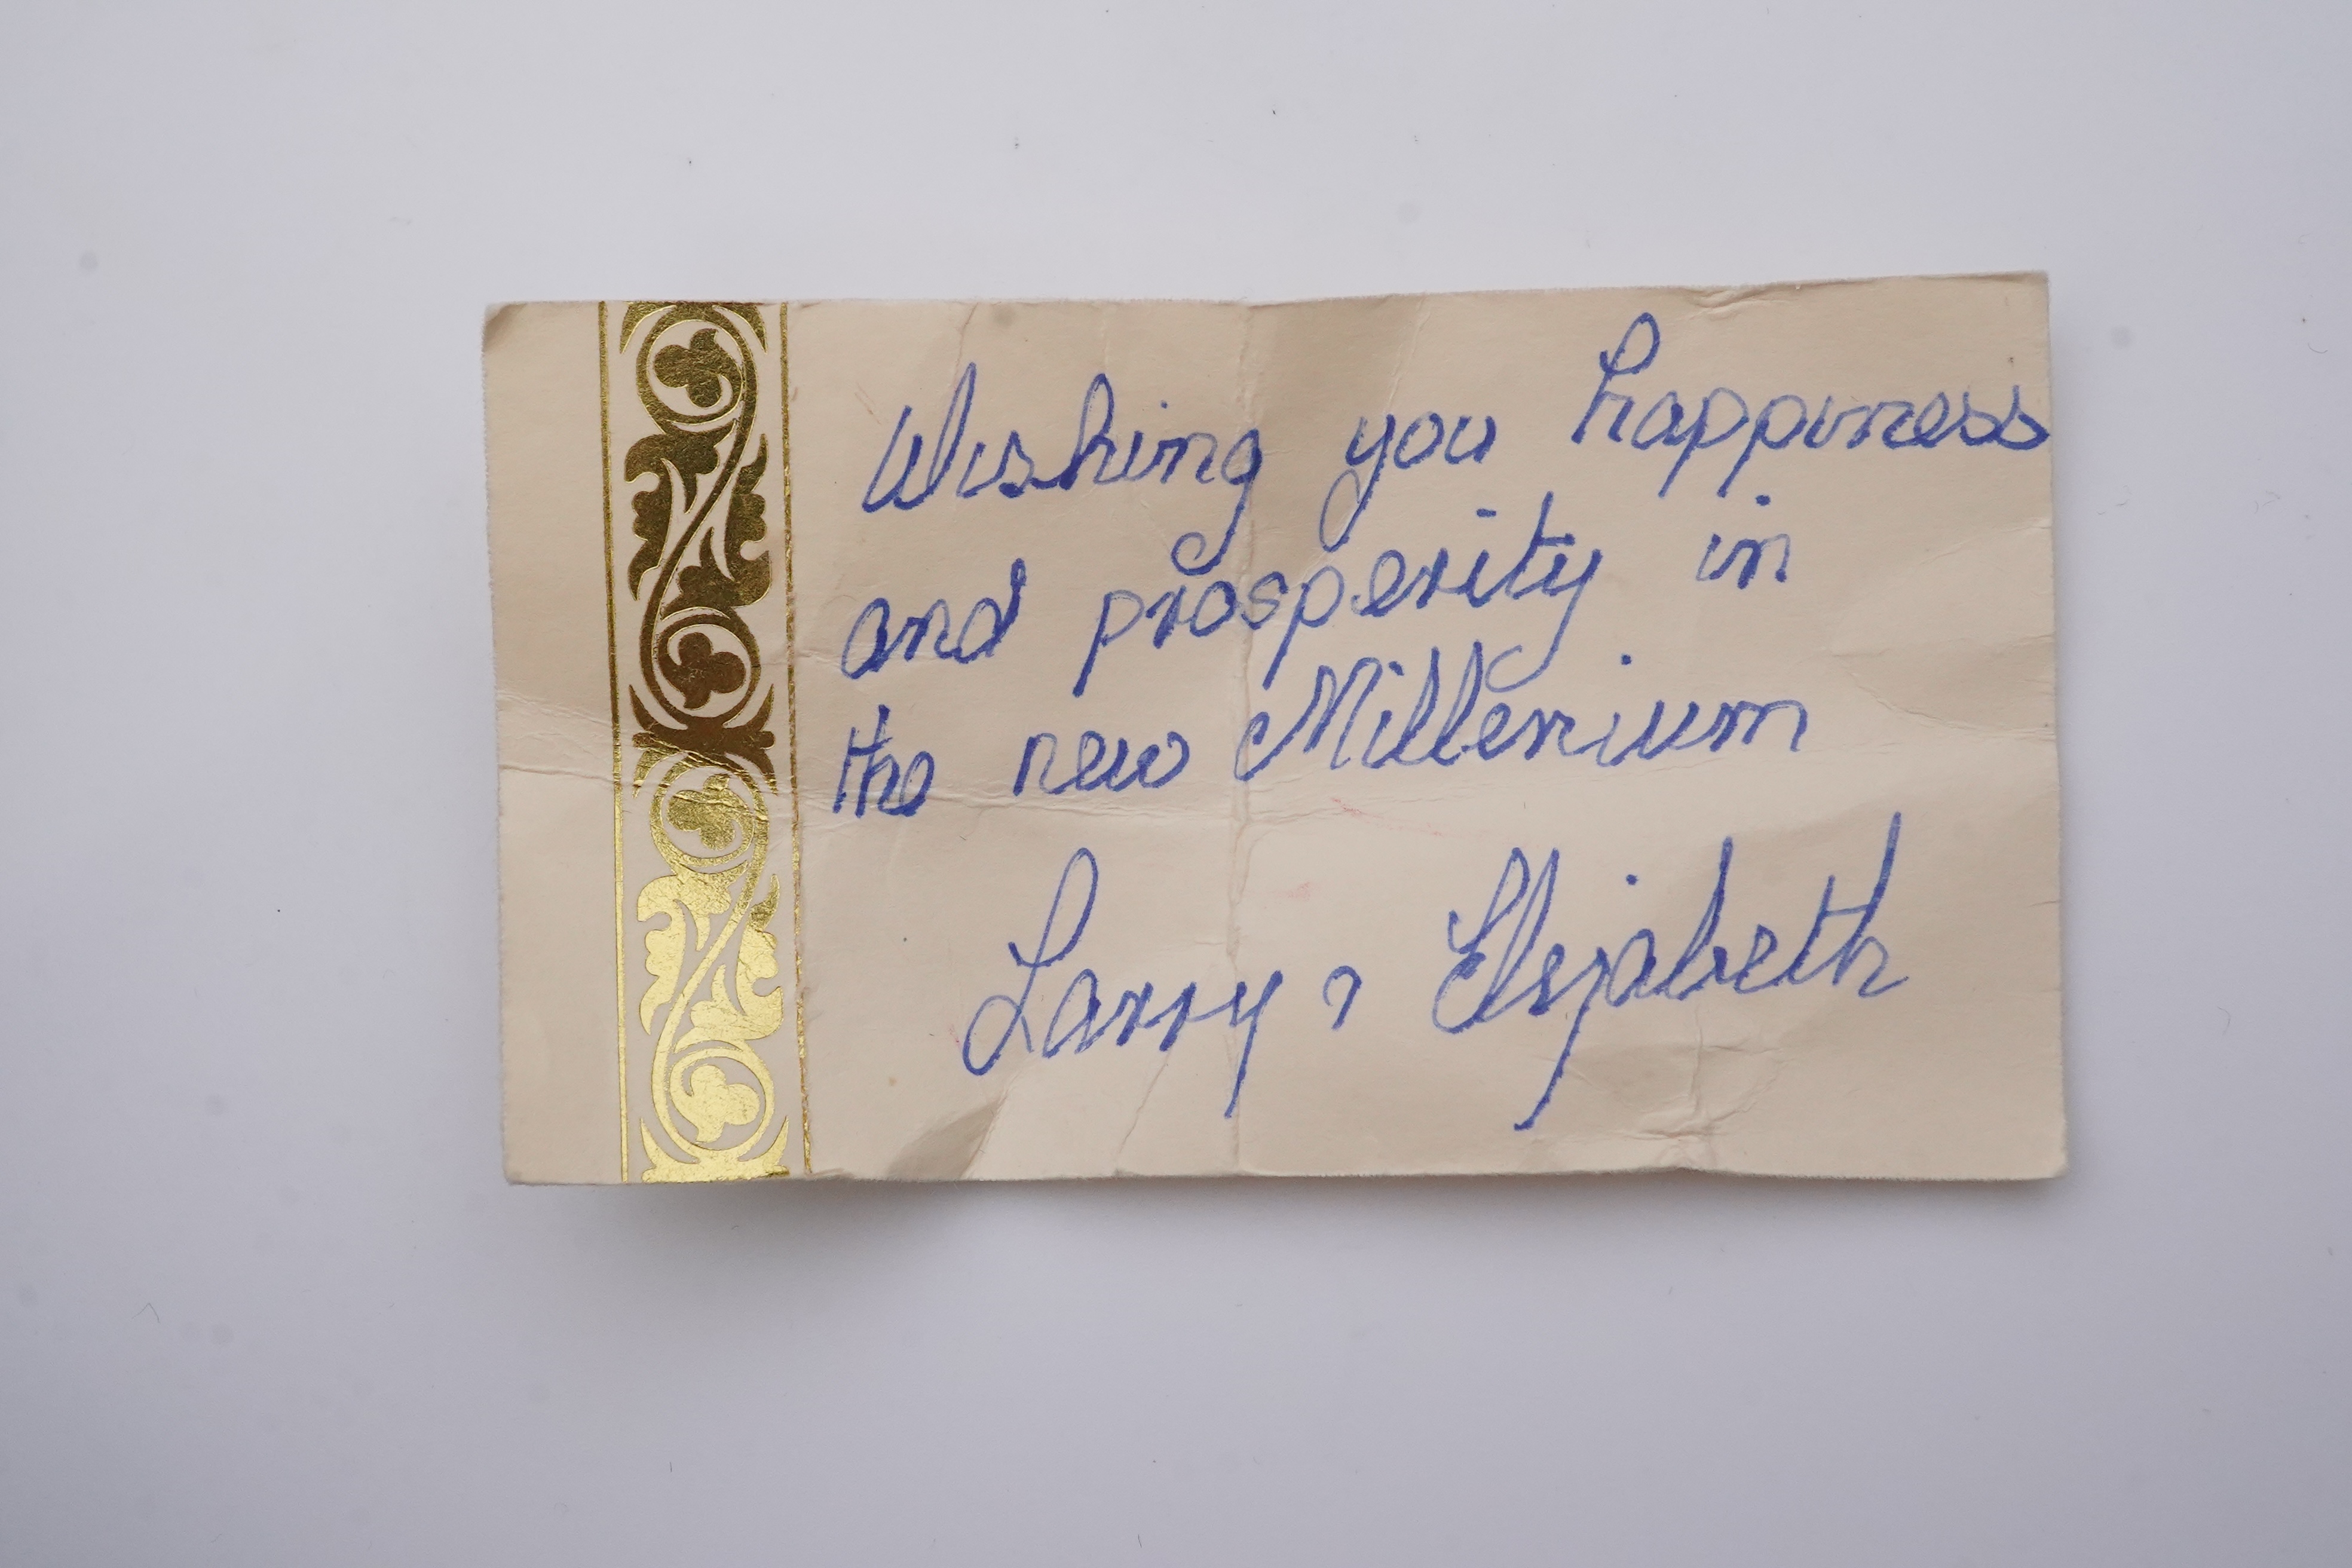 Wishing you happiness
and prosperity in
the new Millenium
Larry & Elizabeth